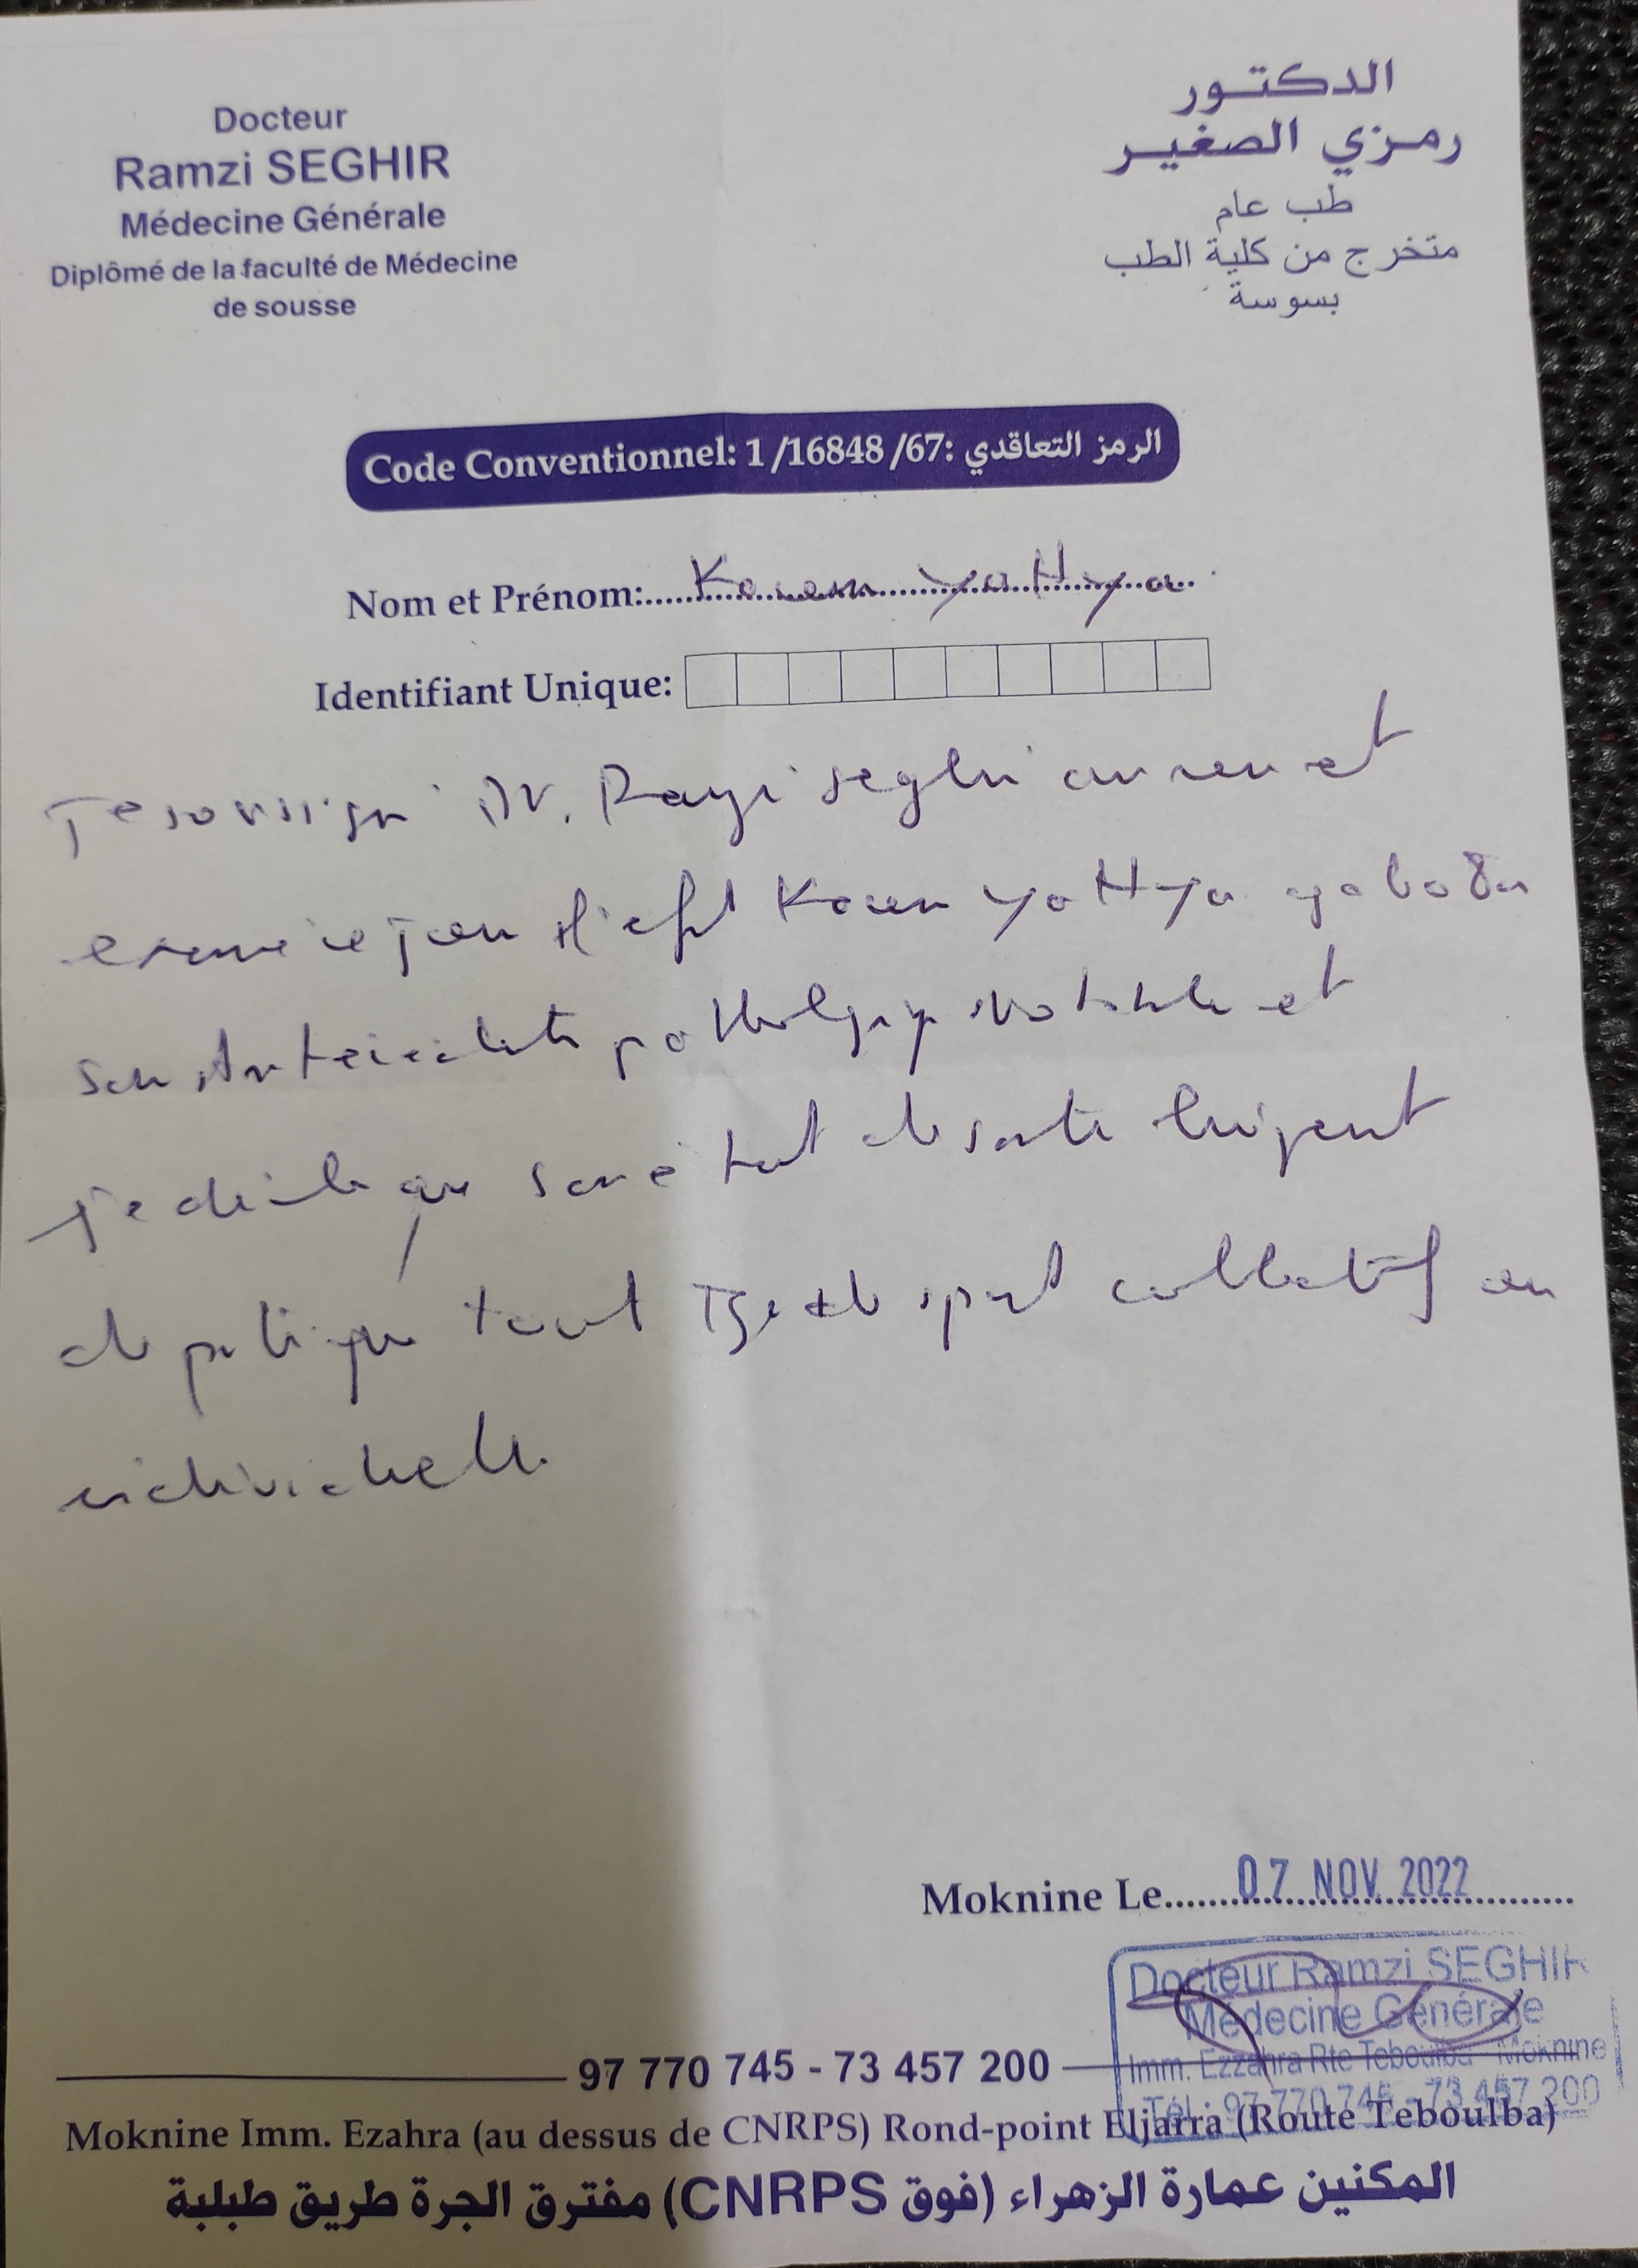 Docteur
Ramzi SEGHIR
Médecine Générale
Diplômé de la faculté de Médecine
de sousse
الدكتور
رمزي الصغير
طب عام
متخرج من كلية الطب
بسوسة
Code Conventionnel: 1/16848/67: الرمز التعاقدي
Nom et Prénom: yaHya
Identifiant Unique:
Je soussigné Dr. Ramzi seghir avoir et
examiné ce jour yaHya
son Antécédents pathologique notable et
je déclare que son état de santé lui permet
de pratiquer tout type de sport collectif ou
individuelle.
Moknine Le 07 NOV 2022
Docteur Ramzi SEGHIR
Médecine Générale
Imm. Ezzahra Rte Teboulba - Moknine
Tél.: 97 770 745 - 73 457 200
97 770 745 - 73 457 200
Moknine Imm. Ezahra (au dessus de CNRPS) Rond-point Eljarra (Route Teboulba)
المكنين عمارة الزهراء (فوق CNRPS) مفترق الجرة طريق طبلبة